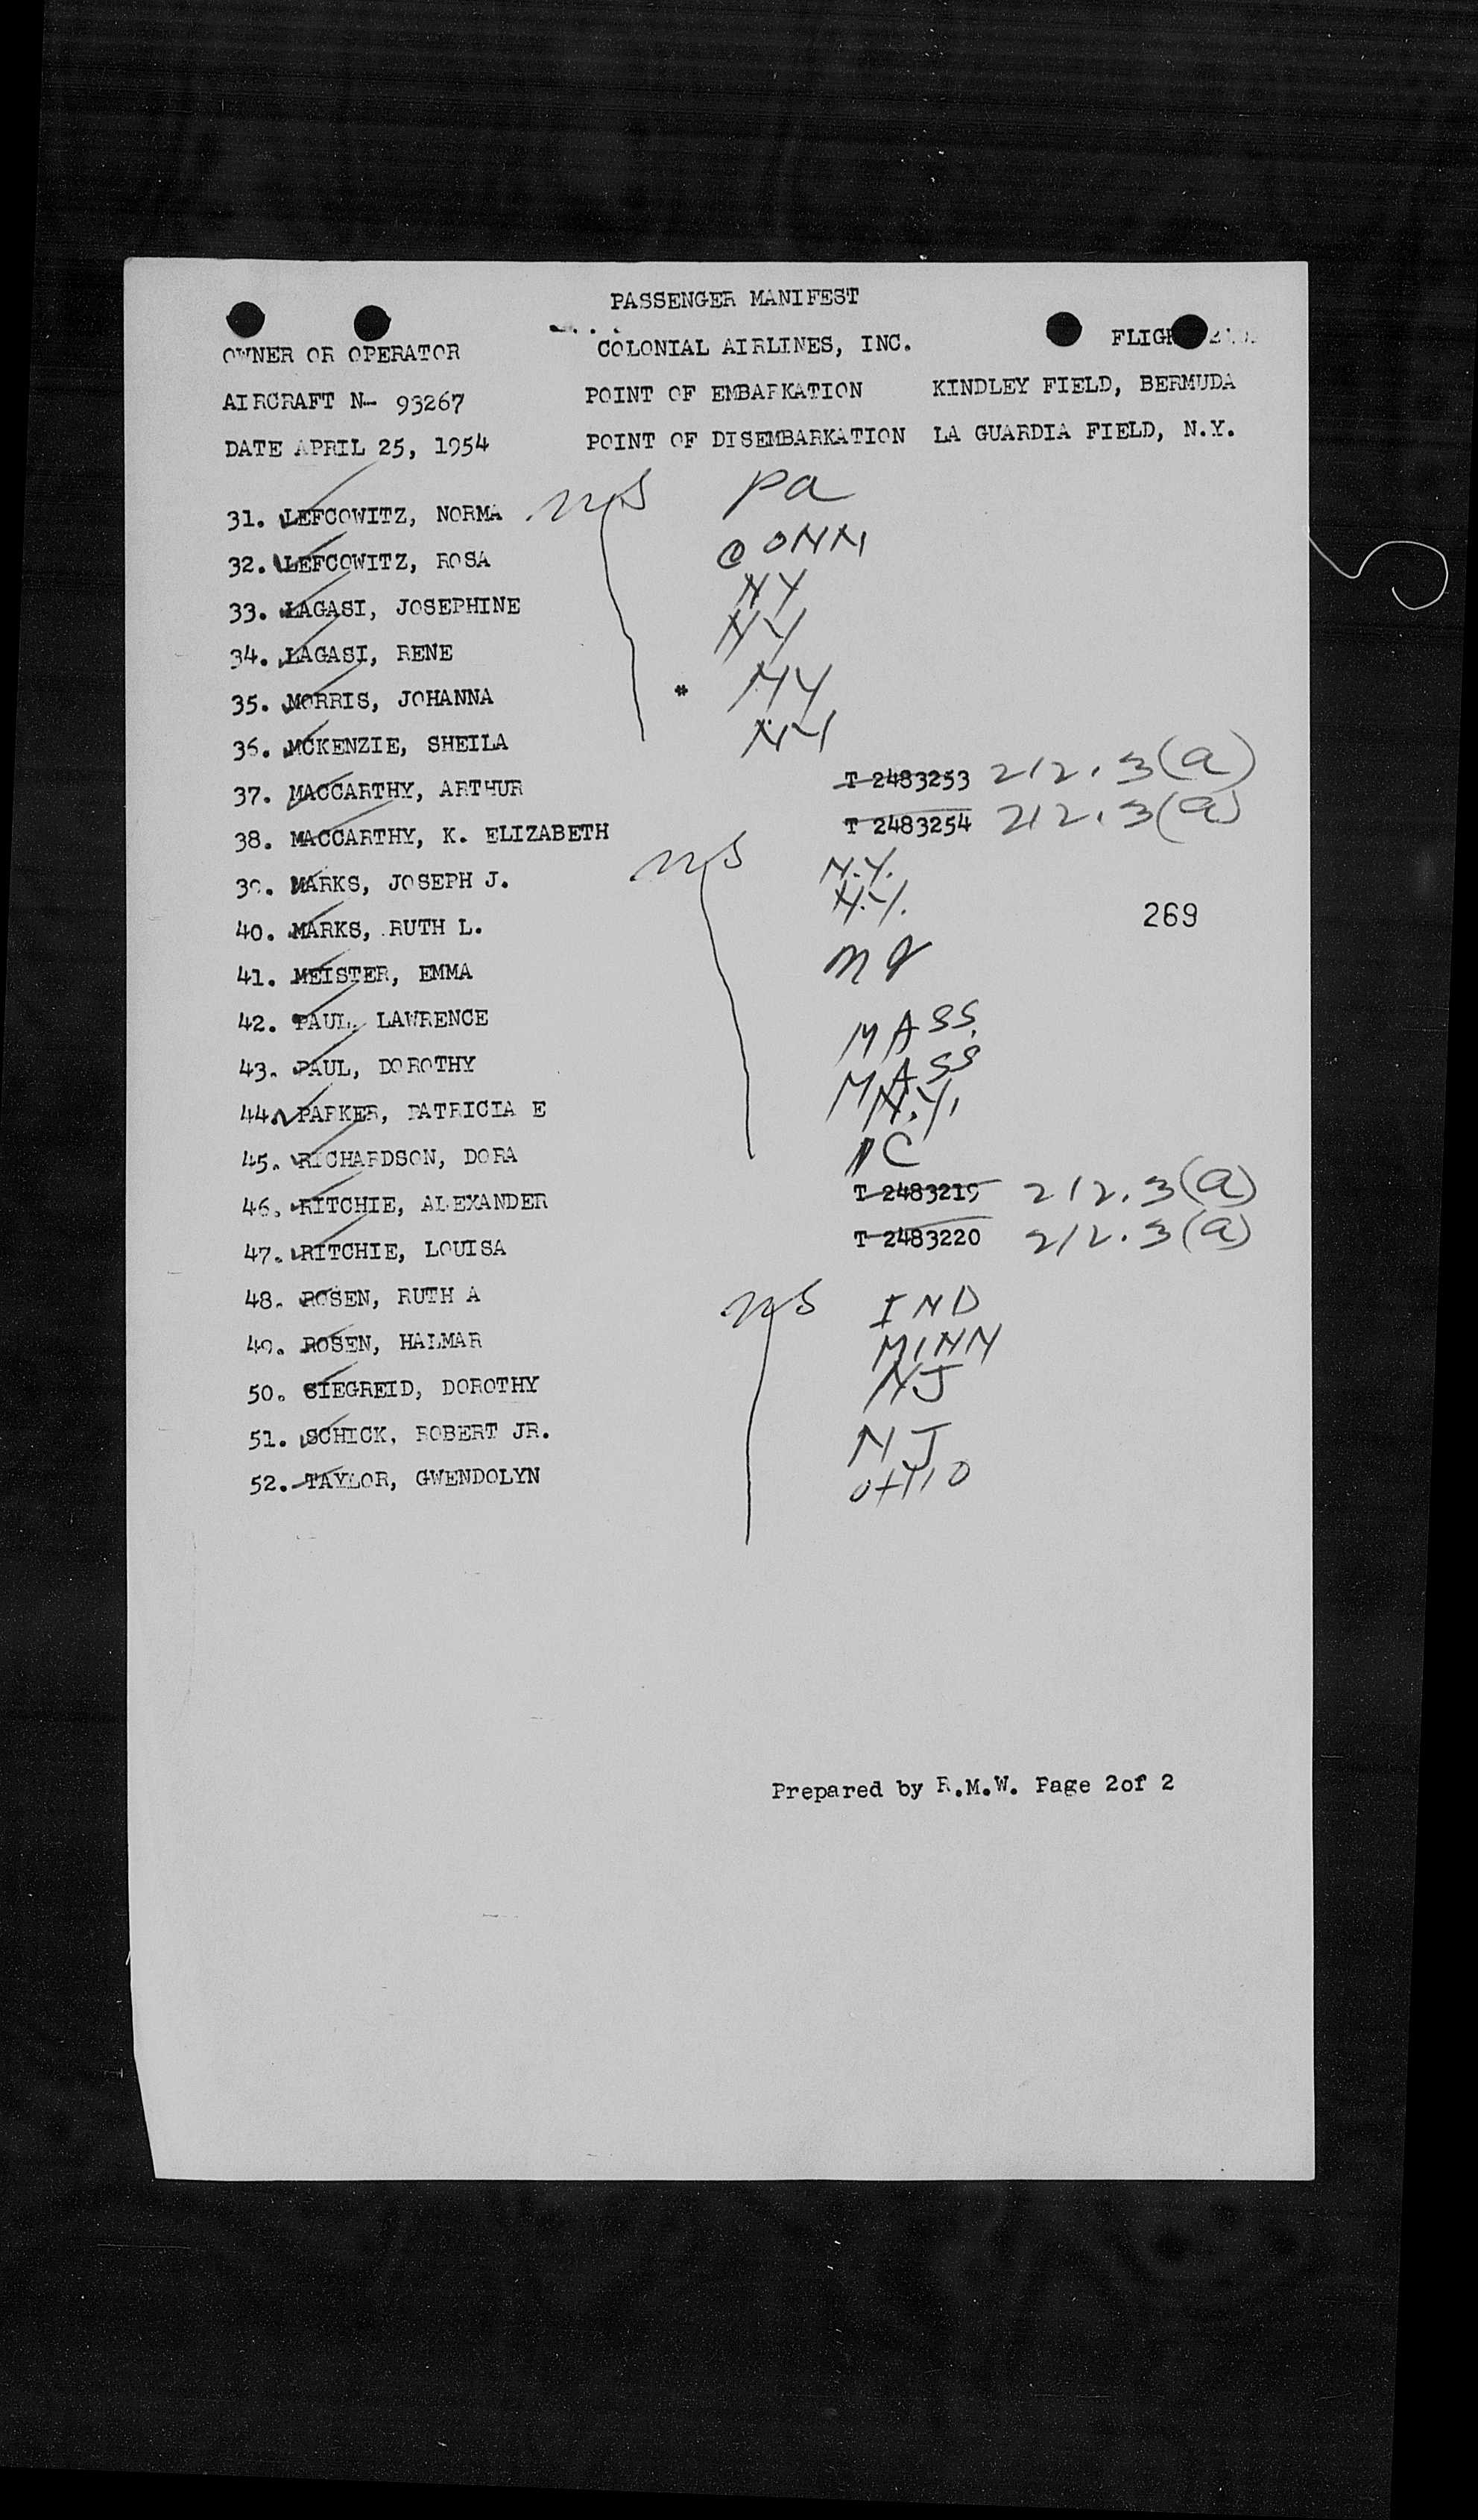 PASSENGER MANIFEST
OWNER OR OPERATOR COLONIAL AIRLINES, INC.
AIRCRAFT N- 93267 POINT OF EMBARKATION KINDLEY FIELD, BERMUDA
DATE APRIL 25, 1954 POINT OF DISEMBARKATION LA GUARDIA FIELD, N.Y.
31. LEFCOWITZ, NORMA Pa
32. LEFCOWITZ, ROSA CONN
33. LAGASI, JOSEPHINE NY
34. LAGASI, RENE NY
35. MORRIS, JOHANNA * NY
36. MCKENZIE, SHEILA NY
37. MACCARTHY, ARTHUR T 2483253 212.3(a)
38. MACCARTHY, K. ELIZABETH T 2483254 212.3(a)
39. MARKS, JOSEPH J. N.Y.
40. MARKS, RUTH L. N.Y. 269
41. MEISTER, EMMA
42. PAUL, LAWRENCE MASS.
43. PAUL, DOROTHY MASS
44. PARKER, PATRICIA E N.Y.
45. RICHARDSON, DORA
46. RITCHIE, ALEXANDER T 2483219 212.3(a)
47. RITCHIE, LOUISA T 2483220 212.3(a)
48. ROSEN, RUTH A IND
49. ROSEN, HALMAR MINN
50. SIEGREID, DOROTHY NJ
51. SCHICK, ROBERT JR. NJ
52. TAYLOR, GWENDOLYN OHIO
Prepared by R.M.W. Page 2of 2